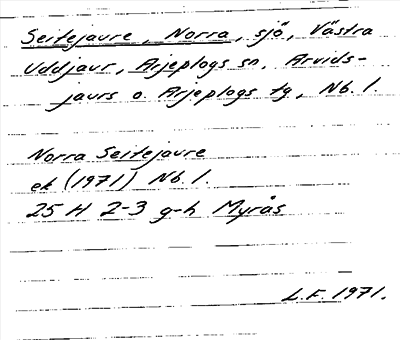 Seitejaure, Norra, sjö, Västra
Uddjaur, Arjeplogs sn, Arvids-
jaurs o. Arjeplogs tg, Nb. l.
Norra Seitejaure
ek (1971) Nb. l.
25 H 2-3 g-h Myrås
L.F. 1971.